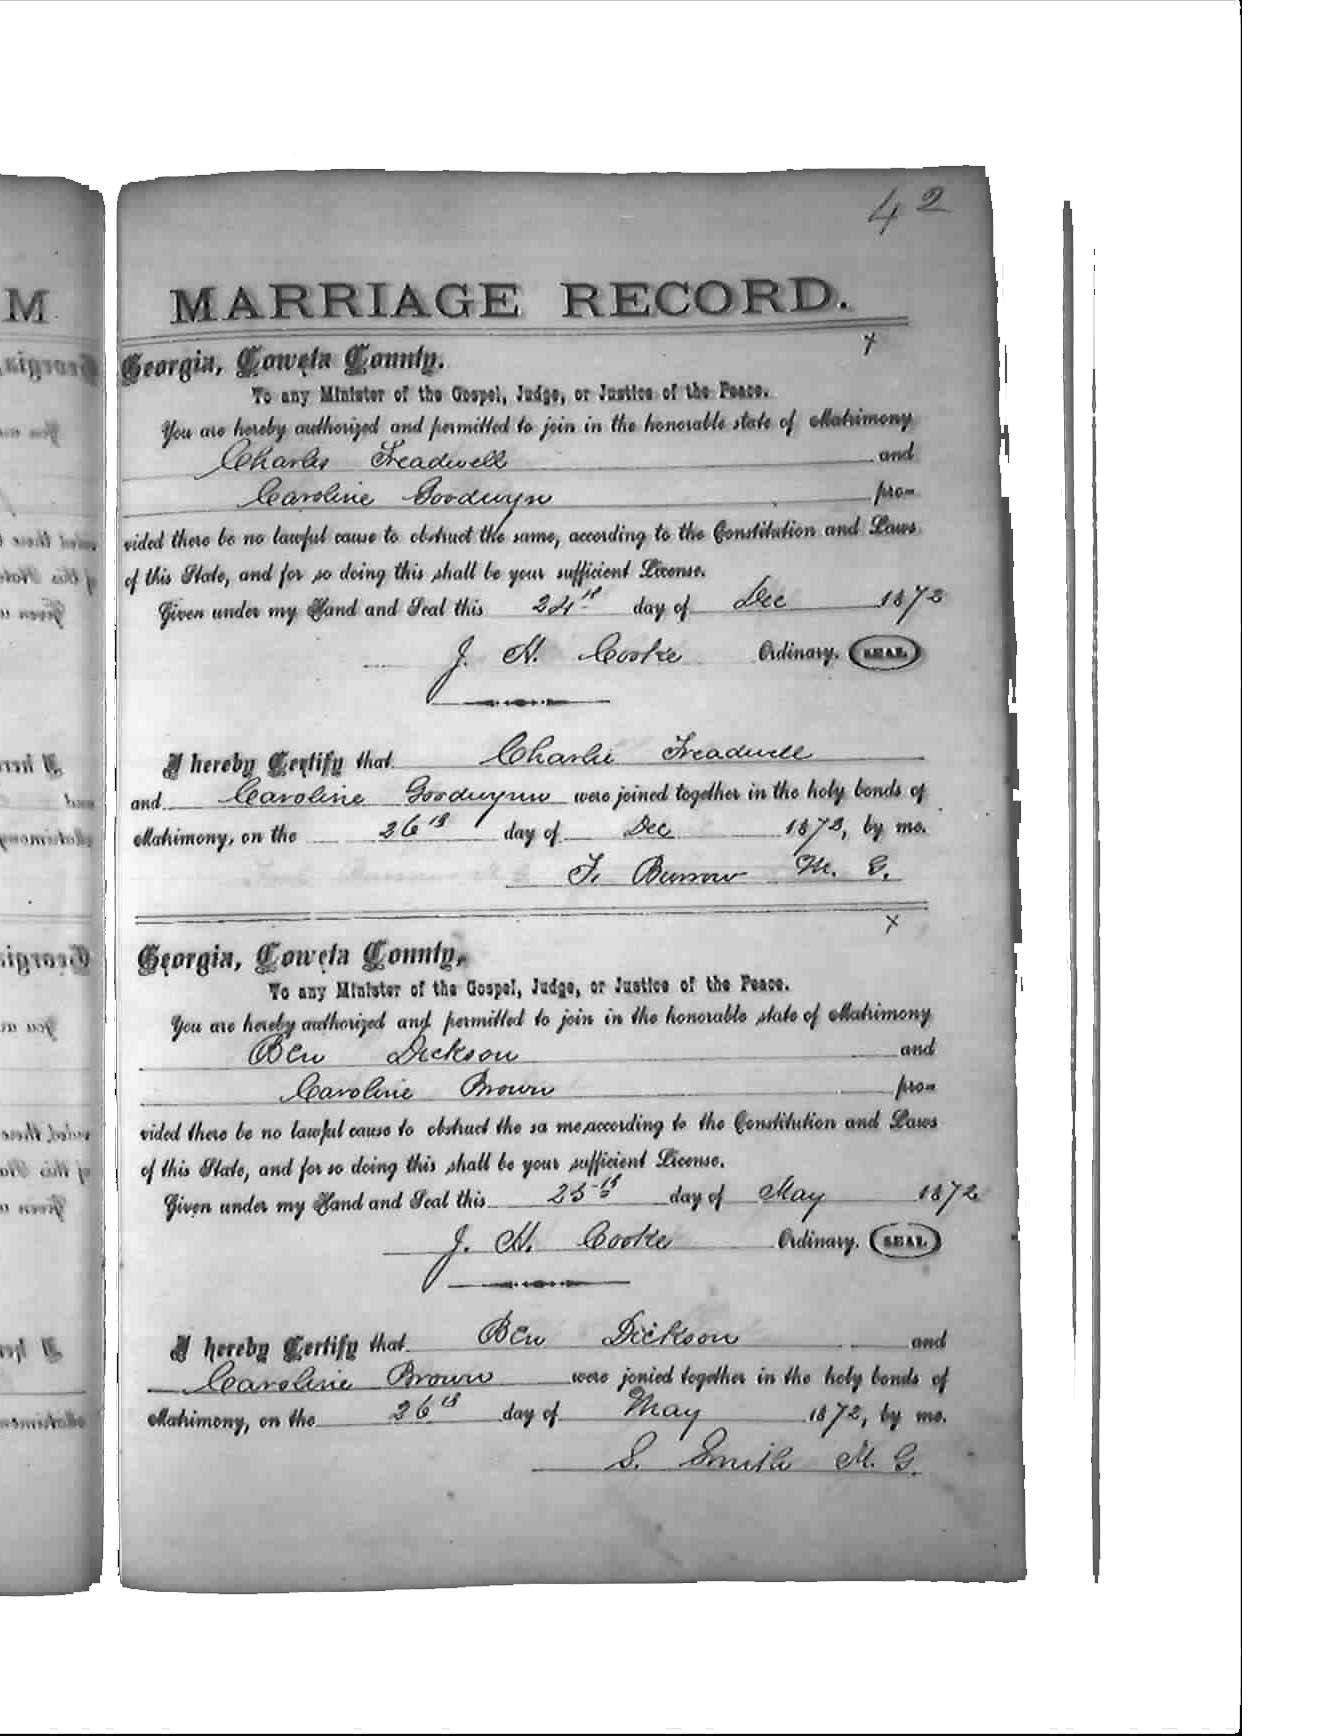 42
MARRIAGE RECORD.
x
Georgia, Coweta County.
To any Minister of the Gospel, Judge, or Justice of the Peace.
You are hereby authorized and permitted to join in the honorable state of Matrimony
Charles Treadwell and
Caroline Goodwyn pro-
vided there be no lawful cause to obstruct the same, according to the Constitution and Laws
of this State, and for so doing this shall be your sufficient License.
Given under my Hand and Seal this 24th day of Dec 1872
J. H. Cooke Ordinary. SEAL
I hereby Certify that Charlie Treadwell
and Caroline Goodwynn were joined together in the holy bonds of
Matrimony, on the 26th day of Dec 1872, by me.
F. Burrow M. G.
x
Georgia, Coweta County,
To any Minister of the Gospel, Judge, or Justice of the Peace.
You are hereby authorized and permitted to join in the honorable state of Matrimony
Ben Dickson and
Caroline Brown pro-
vided there be no lawful cause to obstruct the sa me, according to the Constitution and Laws
of this State, and for so doing this shall be your sufficient License.
Given under my Hand and Seal this 25th day of May 1872
J. H. Cooke Ordinary. SEAL
I hereby Certify that Ben Dickson and
Caroline Brown were jonied together in the holy bonds of
Matrimony, on the 26th day of May 1872, by me.
S. Smith M. G.